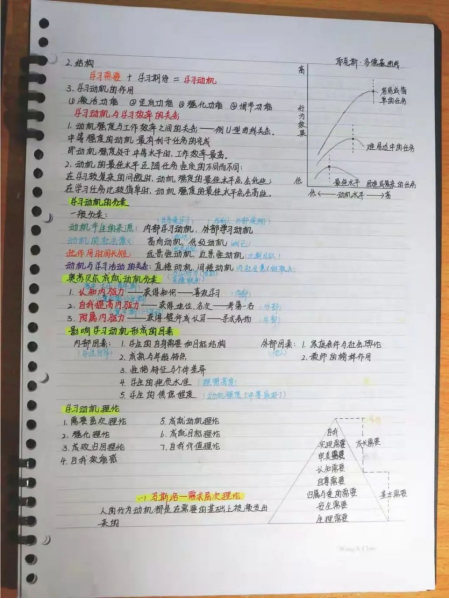 2. 结构
学习需要 + 学习期待 = 学习动机
3. 学习动机的作用
① 激活功能 ② 定向功能 ③ 强化功能 ④ 调节功能
学习动机与学习效率的关系
1. 动机强度与工作效率之间的关系——倒U型曲线关系。
中等强度的动机最有利于任务的完成
即动机强度处于中等水平时，工作效率最高。
2. 动机的最佳水平随任务性质的不同而不同：
在学习较复杂的问题时，动机强度的最佳水平点会低些；
在学习任务比较简单时，动机强度的最佳水平点会高些。
高
低
最佳水平
低 动机水平 高
学习动机的分类
一般分类：
动机产生的来源：内部学习动机、外部学习动机
高尚动机、低级动机
远景性动机、近景性动机
动机与学习活动的关系：直接动机、间接动机
奥苏贝尔成就动机分类
1. 认知内驱力——获得知识——喜欢学习
2. 自我提高内驱力——获得地位、名次——考第一名
3. 附属内驱力——获得
影响学习动机形成的因素
内部因素：1. 学生的自身需要和目标结构
2. 成熟与年龄特点
3. 性格特征与个性差异
4. 学生的抱负水准
5. 学生的焦虑程度
外部因素：1. 家庭条件与社会环境
2. 教师的榜样作用
学习动机理论
1. 需要层次理论 5. 成就动机理论
2. 强化理论 6. 成就目标理论
3. 成败归因理论 7. 自我价值理论
4. 自我效能感
马斯洛—需求层次理论
人的行为动机都是在需要的基础上被激发出
来的
自我
实现需要
审美需要
认知需要
自尊需要
归属与爱的需要
安全需要
生理需要
成长需要
基本需要